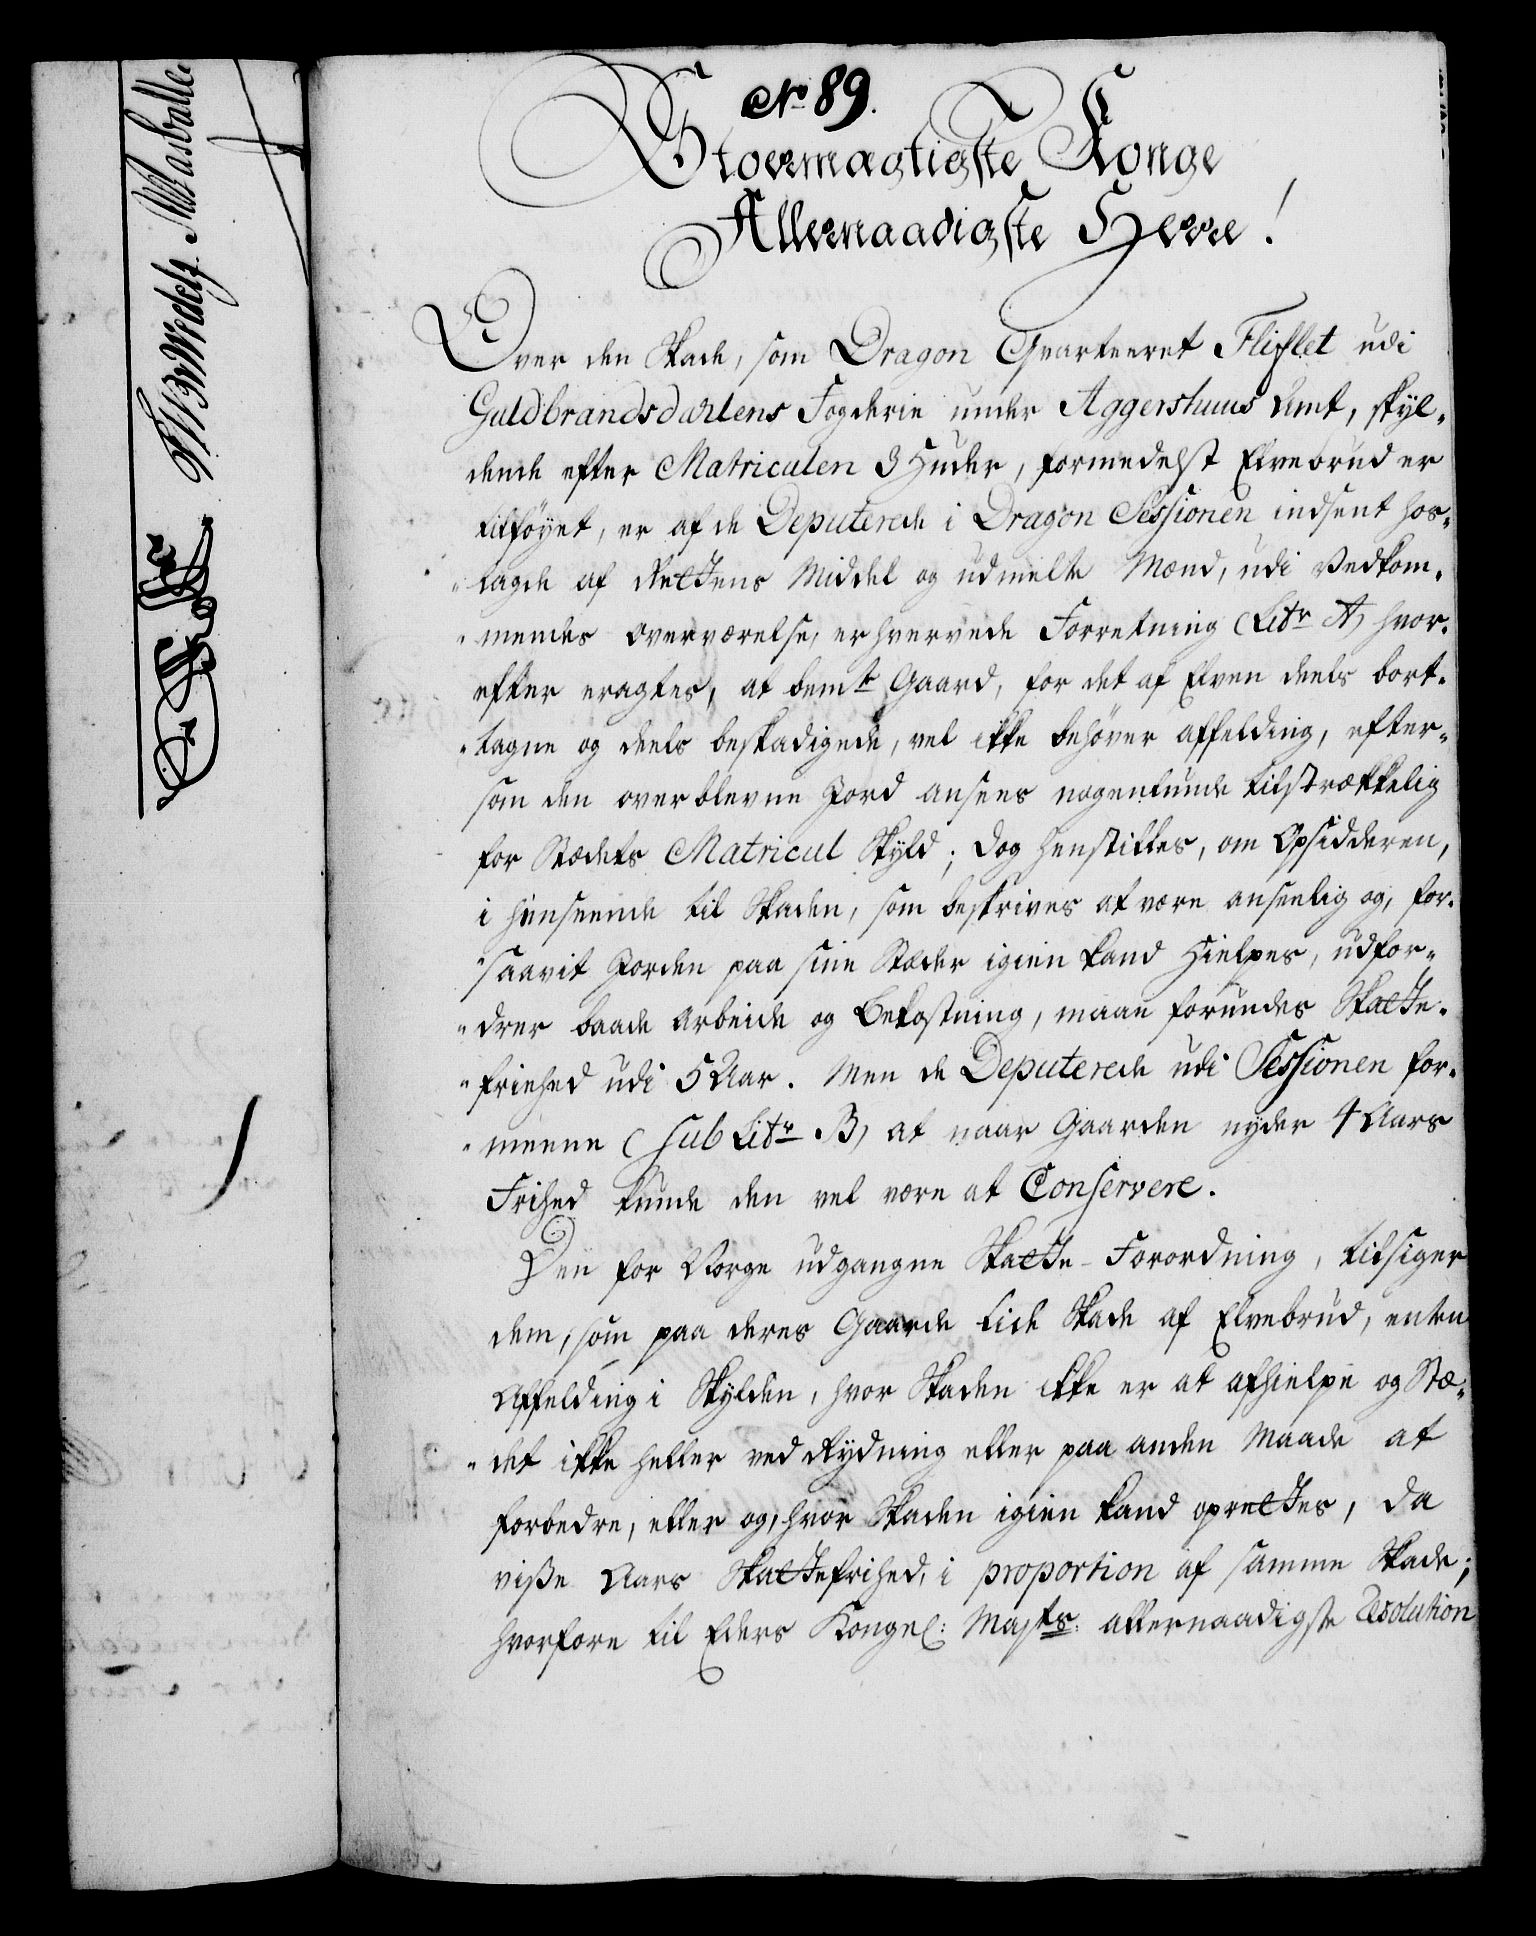 No 89.
Stormægtigste Konge
Allernaadigste Herre!
Over den Skade, som Dragon Qvarteeret Fliflet udi
Guldbrandsdahlens Fogderie under Aggershuus Amt, skyl-
dende efter Matriculen 3 Huder, formedelst Elvebrud er
tilføyet, er af de Deputerede i Dragon Sessionen indsent hos-
lagde af Rettens Middel og udmelte Mænd, udi Vedkom-
mendes Overværelse, erhvervede Forretning (Litr A) hvor-
efter eragtes, at bemte Gaard, for det af Elven deels bort-
tagne og deels beskadigede, vel ikke behøver affelding, efter-
som den overblevne Jord ansees nogenlunde tilstrækkelig
for Stædets Matricul Skyld; dog henstilles, om Opsidderen,
i henseende til Skaden, som beskrives at være anseelig og, for-
saavit Jorden paa sine Stæder igien kand hielpes, udfor-
drer baade Arbeide og Bekostning, maae forundes Skatte-
friehed udi 5 Aar. Men de Deputerede udi Sessionen for-
meene (sub Litr B) at naar Gaarden nyder 4 Aars
Frihed kunde den vel være at Conservere.
Den for Norge udgangne Skatte-Forordning, tilsiger
dem, som paa deres Gaarde lide Skade af Elvebrud, enten
Affelding i Skylden, hvor Skaden ikke er at afhielpe og Stæ-
det ikke heller ved Rydning eller paa anden Maade at
forbedre, eller og, hvor Skaden igien kand oprettes, da
viße Aars Skattefrihed, i proportion af samme Skade;
hvorfore til Eders Kongel: Majts: allernaadigste Resolution